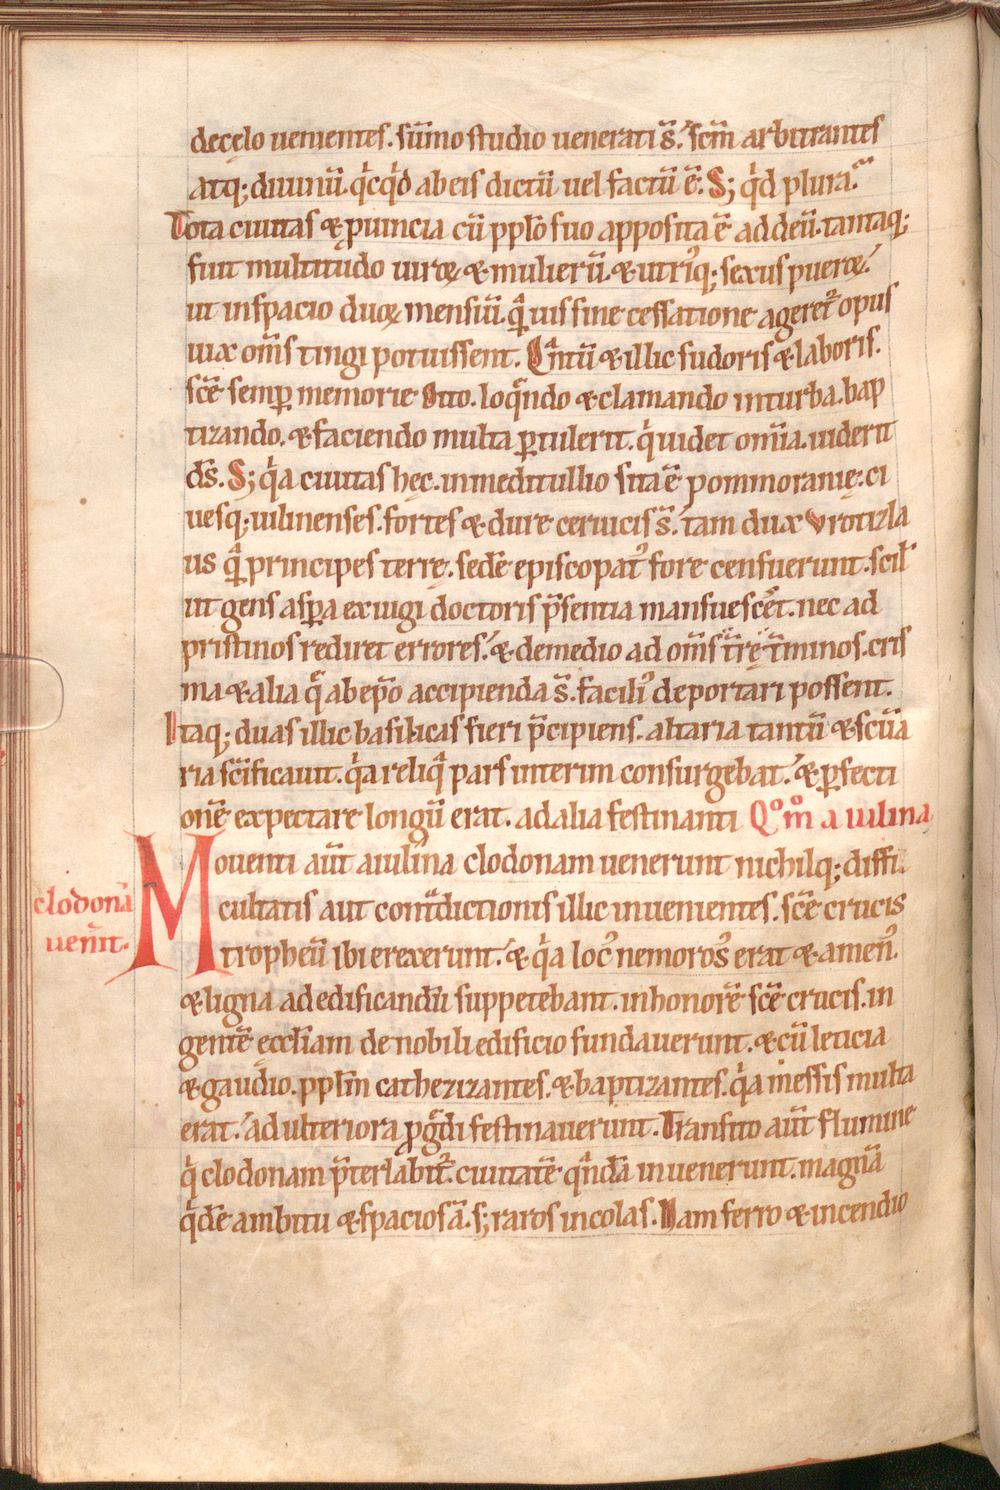 decęlo uenientes. sūmo studio uenerati s̄. scm̄ arbitrantes
atq; diuinū. qͥcqͥd ab eis dictū uel factū ē. S; qͥd plura.
Tota ciuitas & ꝓuincia cū pplo suo apposita ē ad deū. tantaq;
fuit multitudo uiroꝝ & mulierū. & utriꝰq; sexus pueroꝝ.
ut inspacio duoꝝ mensiū. qͣuis sine cessatione ageret᷑ opus
uix om̄s tingi potuissent. Qͣntū & illic sudoris & laboris.
scē semꝑ memorie Otto. loqͣndo & clamando inturba. bap
tizando. & faciendo multa ꝑtulerit. qͥ uidet om̄ia. uiderit
ds̄. S; qͥa ciuitas hęc. inmeditullio sita ē pommoranię. ci
uesq. iulinenses. fortes & dure ceruicis s̄. tam dux Vrotizla
us qͣ principes terrę. sedē episcopatꝰ fore censuerunt. scil̄
ut gens asꝑa ex iugi doctoris p̄sentia mansuescēt. nec ad
pristinos rediret errores. & demedio ad om̄s tr̄ę t̄minos. cris
ma & alia qͣ ab ep̄o accipienda s̄. faciliꝰ deportari possent.
Itaq; duas illic basilicas fieri p̄cipiens. altaria tantū & scūa
ria scīficauit. qͥa reliqͣ pars interim consurgebat. & ꝑfecti
onē expectare longū erat. ad alia festinanti Qͦmͦ a iulina
clodonā
uen̄it.
Mouenti aūt aiulina clodonam uenerunt nichilq; diffi
cultatis aut contͣdictionis illic inuenientes. scē crucis
tropheū ibi erexerunt. & qͥa locꝰ nemorosꝰ erat & amenꝰ.
& ligna ad edificandū suppetebant. inhonorē scē crucis. in
gentē eccl̄iam de nobili edificio fundauerunt. & cū leticia
& gaudio. ppl̄m cathezizantes. & baptizantes. qͥa messis multa
erat. ad ulteriora ꝓgͣdi festinauerunt. Transito aūt flumine
qͥ clodonam p̄terlabit᷑. ciuitatē qͣndā inuenerunt. magnā
qͥdē ambitu & spaciosā. s; raros incolas. Nam ferro & incendio